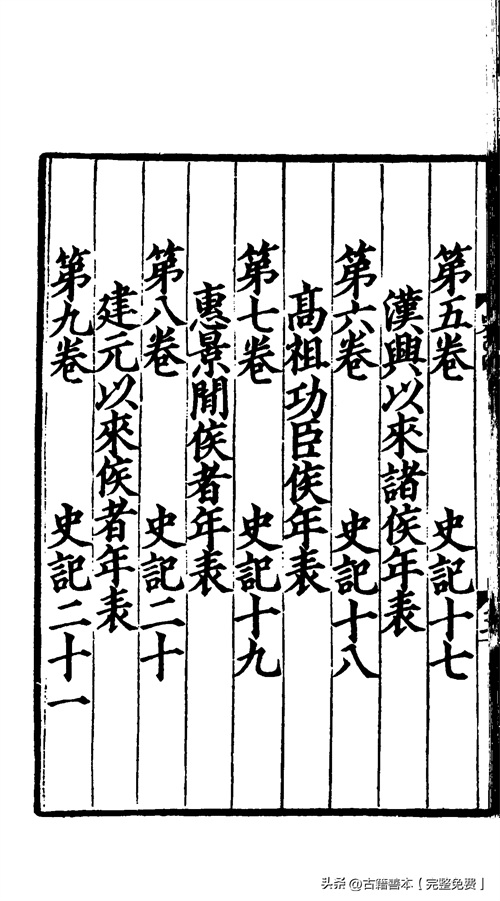 第五卷 史記十七
漢興以來諸侯年表
第六卷 史記十八
高祖功臣侯年表
第七卷 史記十九
惠景閒侯者年表
第八卷 史記二十
建元以來侯者年表
第九卷 史記二十一
头条 @古籍善本【完整免费】